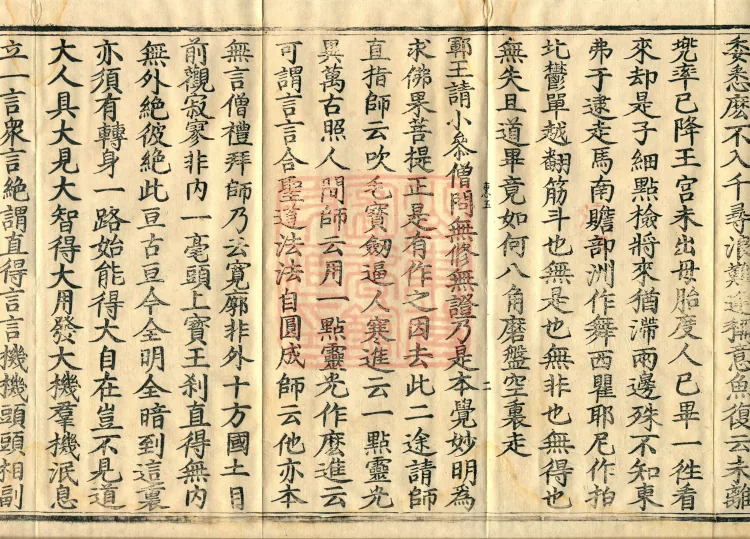 委悉麽不入千尋浪難逢稱意魚復云未離
兜率已降王宮未出母胎度人已畢一徃看
來却是子細點檢將來猶滯兩邊殊不知東
弗于逮走馬南贍部洲作舞西瞿耶尼作拍
北鬱單越翻筋斗也無是也無非也無得也
無失且道畢竟如何八角磨盤空裏走
鄆王請小叅僧問無修無證乃是本覺妙明爲
求佛果菩提正是有作之因去此二途請師
直指師云吹毛寶劒逼人寒進云一點靈光
異萬古照人間師云用一點靈光作麽進云
可謂言言合聖道法法自圓成師云他亦本
無言僧禮拜師乃云寬廓非外十方國土目
前觀寂寥非内一毫頭上寳王刹直得無内
無外絶彼絶此亘古亘今全明全暗到這裏
亦須有轉身一路始能得大自在豈不見道
大人具大見大智得大用發大機羣機泯息
立一言衆言絶謂直得言言機機頭頭相副